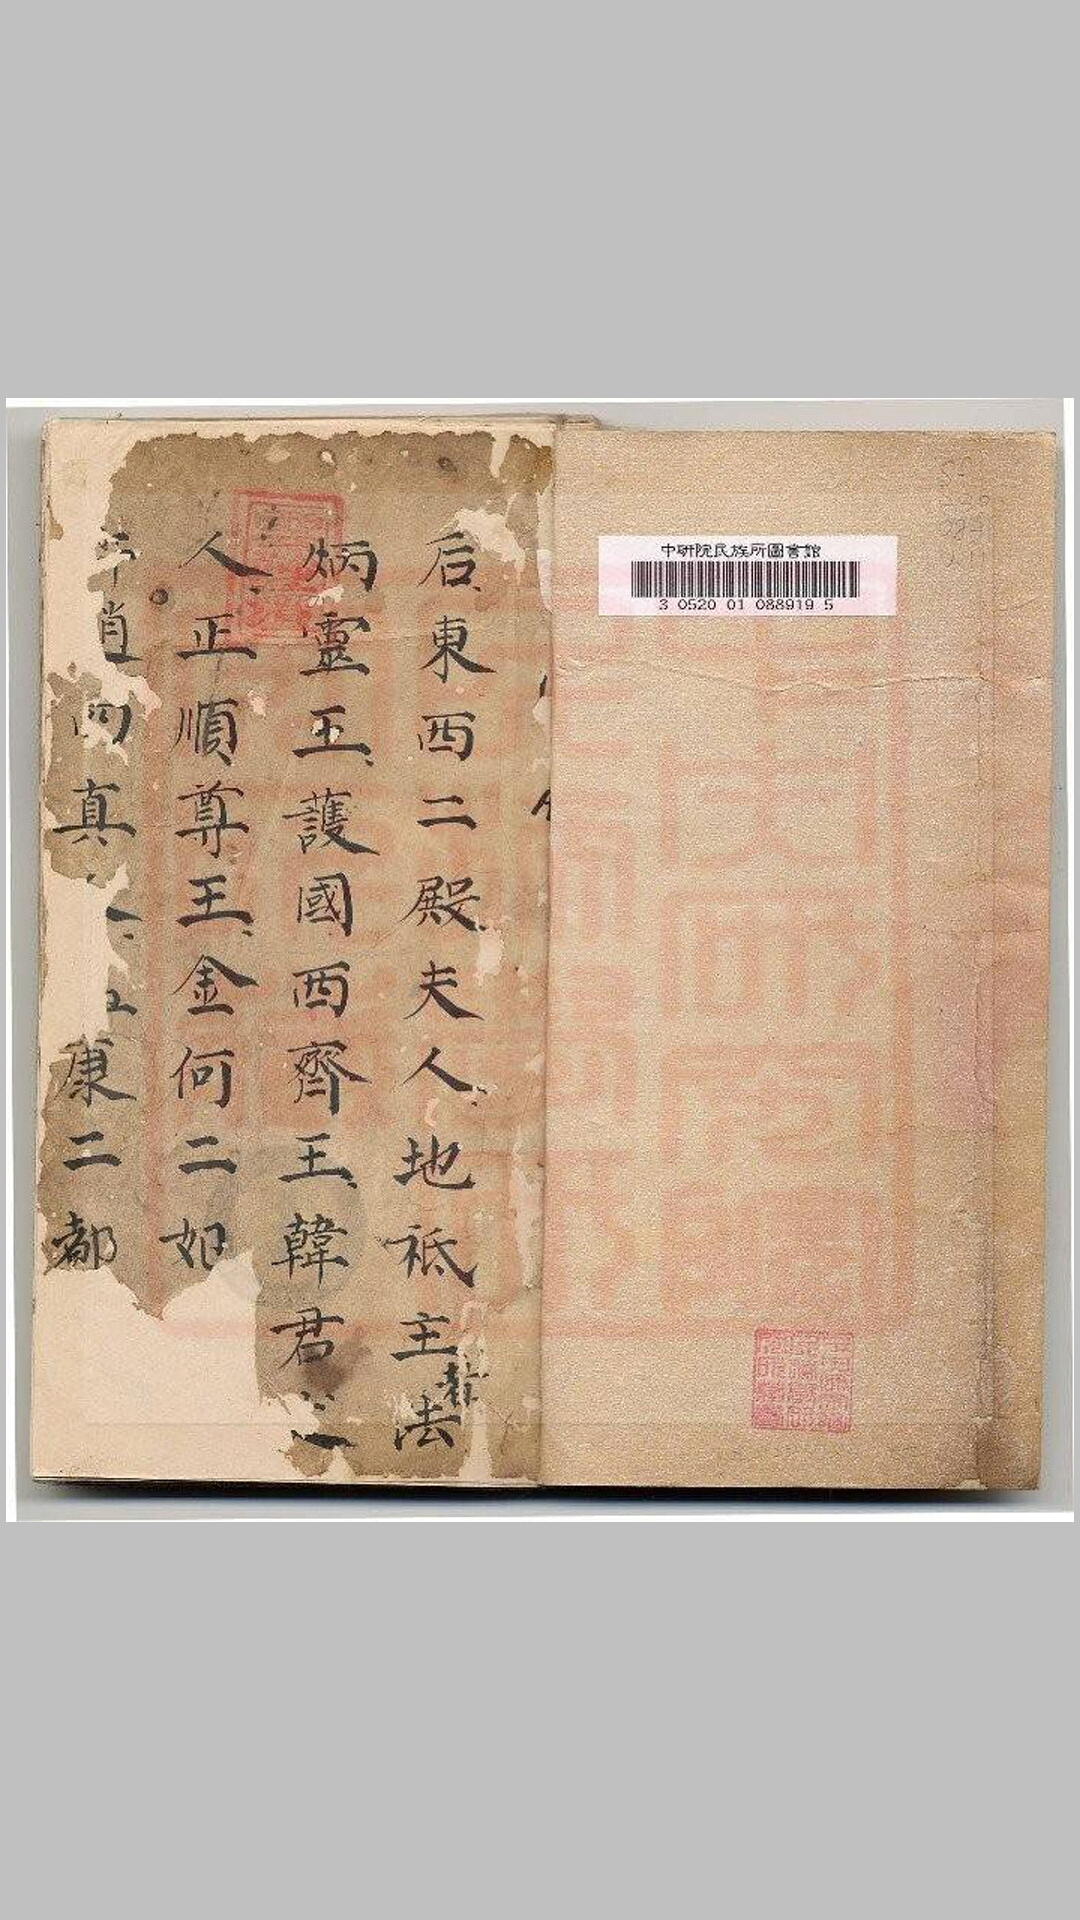 中研院民族所圖書館
3 0520 01 088919 5
后東西二殿夫人地祇主法
炳靈王護國西齊王韓君
人正順尊王金何二妃
真康二都